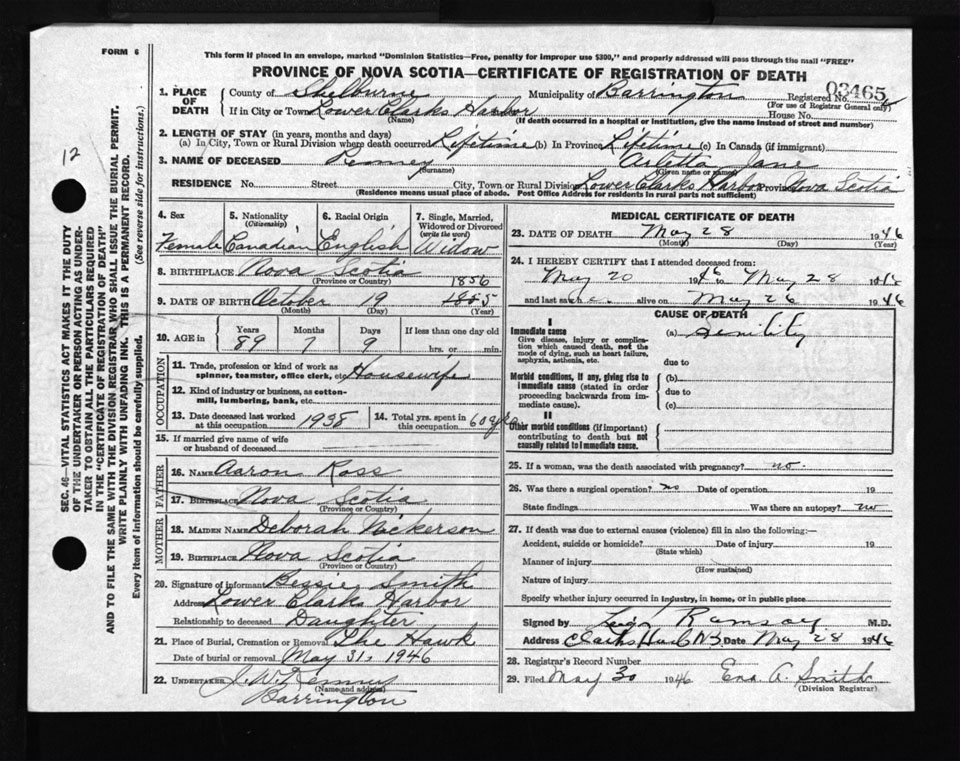 FORM 6
This form if placed in an envelope, marked "Dominion Statistics—Free, penalty for improper use $300," and properly addressed will pass through the mail "FREE"
PROVINCE OF NOVA SCOTIA—CERTIFICATE OF REGISTRATION OF DEATH
1. PLACE OF DEATH County of Shelburne Municipality of Barrington Registered No. 03465
(For use of Registrar General only)
If in City or Town Lower Clarks Harbor House No.
(Name) (If death occurred in a hospital or institution, give the name instead of street and number)
2. LENGTH OF STAY (in years, months and days)
(a) In City, Town or Rural Division where death occurred Lifetime (b) In Province Lifetime (c) In Canada (if immigrant)
3. NAME OF DECEASED Kenney Arletta Jane
(Surname) (Given name or names)
RESIDENCE No. Street City, Town or Rural Division Lower Clarks Harbor Province Nova Scotia
(Residence means usual place of abode. Post Office Address for residents in rural parts not sufficient)
12
SEC. 46—VITAL STATISTICS ACT MAKES IT THE DUTY
OF THE UNDERTAKER OR PERSON ACTING AS UNDER-
TAKER TO OBTAIN ALL THE PARTICULARS REQUIRED
IN THE "CERTIFICATE OF REGISTRATION OF DEATH"
AND TO FILE THE SAME WITH THE DIVISION REGISTRAR WHO SHALL ISSUE THE BURIAL PERMIT.
WRITE PLAINLY WITH UNFADING INK. THIS IS A PERMANENT RECORD.
Every item of information should be carefully supplied. (See reverse side for instructions.)
4. Sex Female
5. Nationality (Citizenship) Canadian
6. Racial Origin English
7. Single, Married, Widowed or Divorced (write the word) Widow
8. BIRTHPLACE Nova Scotia
(Province or Country)
1856
9. DATE OF BIRTH October 19 1855
(Month) (Day) (Year)
10. AGE in Years Months Days If less than one day old
89 7 9 hrs. or min.
OCCUPATION
11. Trade, profession or kind of work as spinner, teamster, office clerk, etc. Housewife
12. Kind of industry or business, as cotton-mill, lumbering, bank, etc.
13. Date deceased last worked at this occupation 1938
14. Total yrs. spent in this occupation 60 yrs
15. If married give name of wife or husband of deceased
FATHER
16. NAME Aaron Ross
17. Birthplace Nova Scotia
(Province or Country)
MOTHER
18. MAIDEN NAME Deborah Nickerson
19. BIRTHPLACE Nova Scotia
(Province or Country)
20. Signature of informant Bessie Smith
Address Lower Clarks Harbor
Relationship to deceased Daughter
21. Place of Burial, Cremation or Removal The Hawk
Date of burial or removal May 31, 1946
22. UNDERTAKER J. W. Kenney
(Name and address)
Barrington
MEDICAL CERTIFICATE OF DEATH
23. DATE OF DEATH May 28 1946
(Month) (Day) (Year)
24. I HEREBY CERTIFY that I attended deceased from:
May 20 1946 to May 28 1946
and last saw h alive on May 26 1946
CAUSE OF DEATH
I
Immediate cause
Give disease, injury or complication which caused death, not the mode of dying, such as heart failure, asphyxia, asthenia, etc.
(a) Senility
due to
Morbid conditions, if any, giving rise to immediate cause (stated in order proceeding backwards from immediate cause).
(b)
due to
(c)
II
Other morbid conditions (if important) contributing to death but not causally related to immediate cause.
25. If a woman, was the death associated with pregnancy? no.
26. Was there a surgical operation? no Date of operation 19
State findings Was there an autopsy? no
27. If death was due to external causes (violence) fill in also the following:—
Accident, suicide or homicide? Date of injury 19
(State which)
Manner of injury
(How sustained)
Nature of injury
Specify whether injury occurred in industry, in home, or in public place
Signed by Ramsay M.D.
Address Clarks Harb NS Date May 28 1946
28. Registrar's Record Number
29. Filed May 30 1946 Ena A. Smith
(Division Registrar)